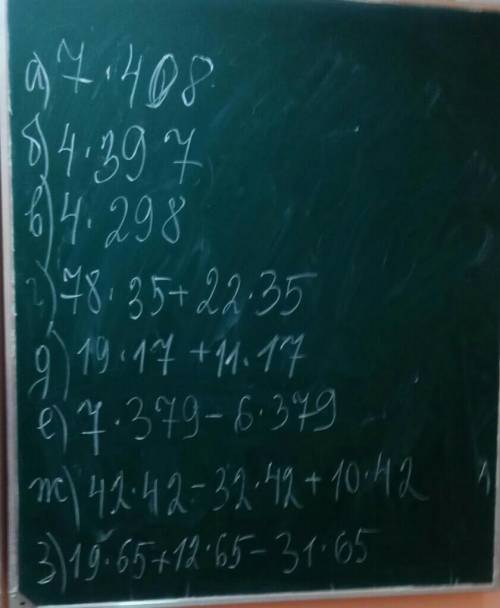 а) 7·408
б) 4·397
в) 4·298
г) 78·35+22·35
д) 19·17+11·17
е) 7·379-6·379
ж) 42·42-32·42+10·42
з) 19·65+12·65-31·65